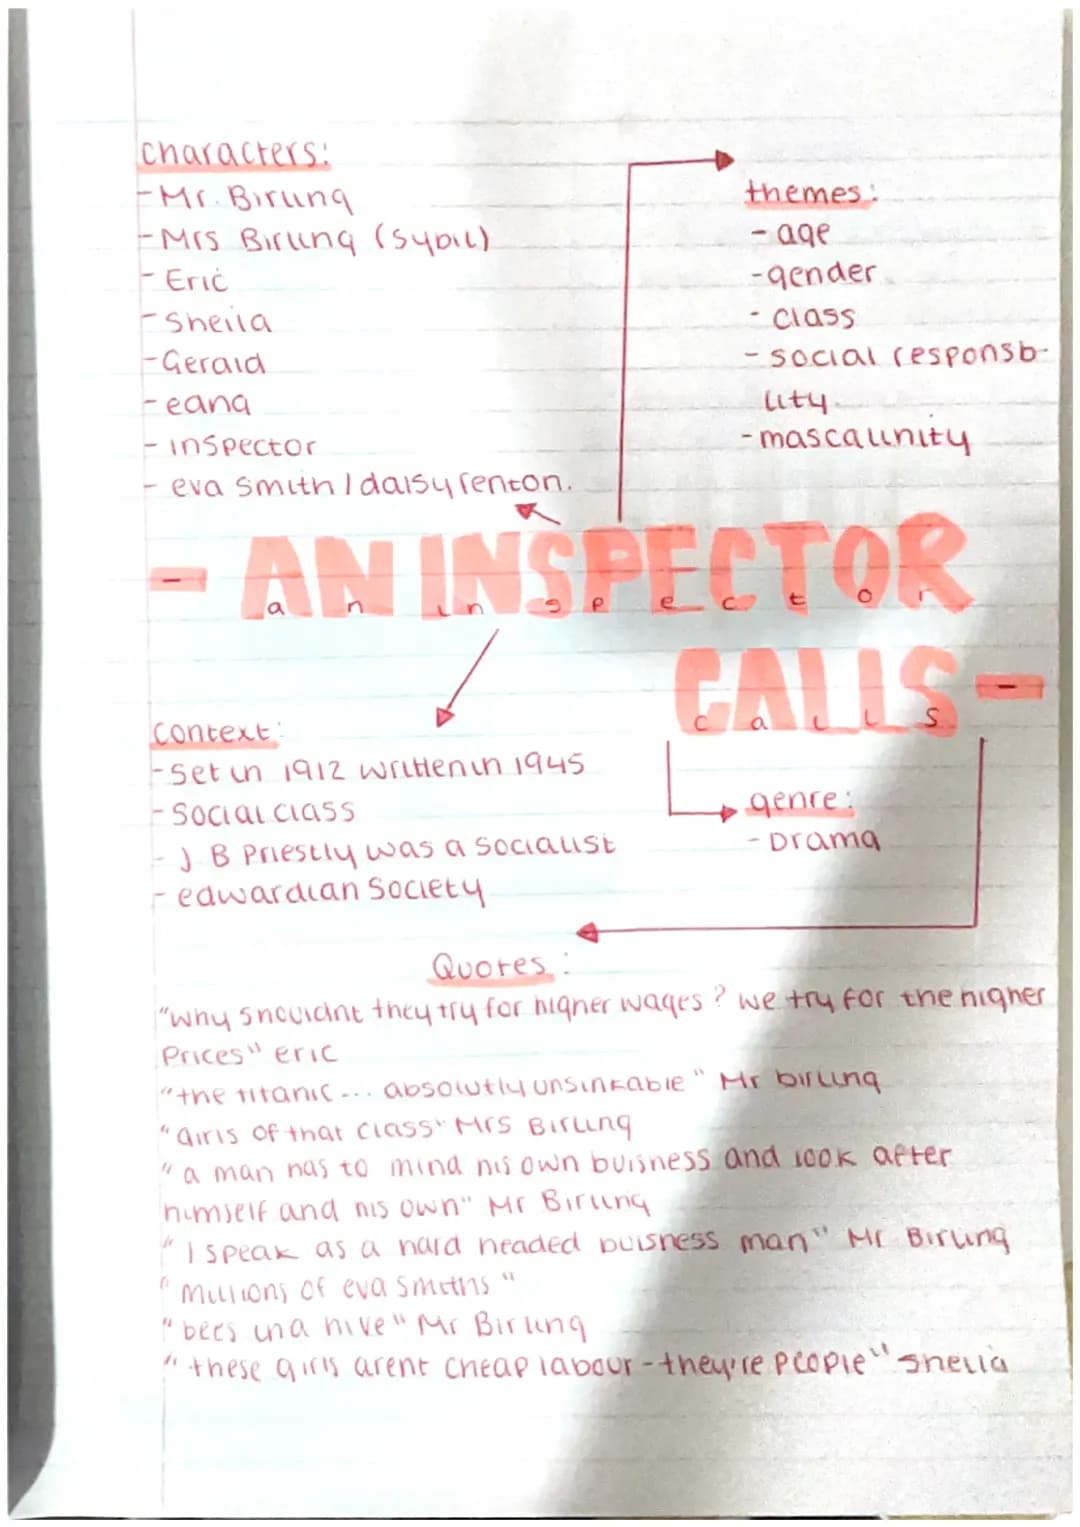 characters:
- Mr. Birling
- Mrs Birling (Sybil)
- Eric
- Sheila
- Gerald
- eana
- inspector
- eva smith / daisy renton.
themes:
- age
- gender
- class
- social responsb-
ility.
- mascalinity
- AN INSPECTOR
a n i n s p e c t o r
CALLS -
c a l l s
context:
- Set in 1912 written in 1945
- Social class
- J B Priestly was a socialist
- edwardian Society
genre:
- Drama
Quotes:
"why shouldnt they try for higher wages? we try for the higher
Prices" eric
"the titanic ... absolutly unsinkable" Mr birling
"girls of that class" Mrs Birling
"a man has to mind his own buisness and look after
himself and his own" Mr Birling
"I speak as a hard headed buisness man" Mr Birling
"Millions of eva smiths"
"bees in a hive" Mr Birling
"these girls arent cheap labour - they're people" sheila